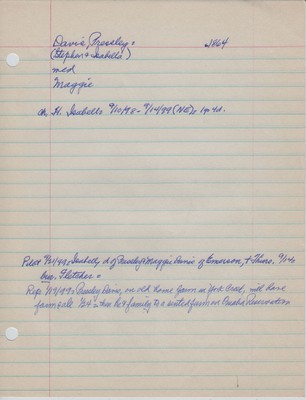 Davis, Pressley - w1864
(Stephen & Isabella)
md
Maggie
ch. H. Isabells 9/10/98 - 9/14/99 (NE), 1y 4d.
Pilot 9/21/99 - Isabells d of Pressley & Maggie Davis of Emerson, + Thurs. 9/14,
bur. Fletcher -
Rep. 1/19/99 - Pressley Davis, on old home farm in Creek, will have
farm sale 1/24 - then he & family to a rented farm on Omaha Reservation